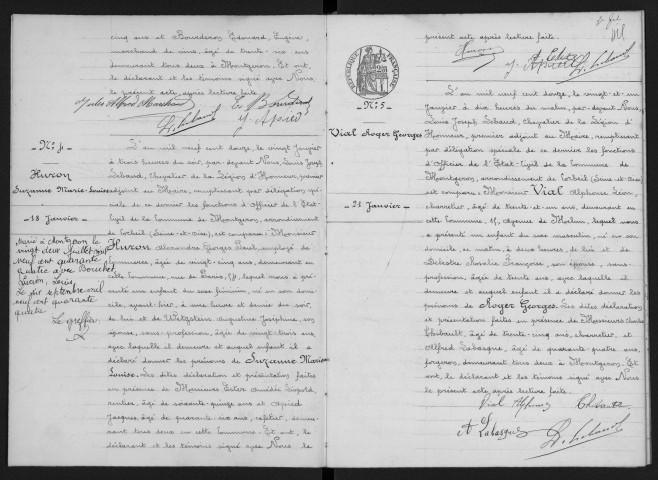 cinq ans et Bourderon Edouard, Eugène,
marchand de vins, âgé de trente-six ans
demeurant tous deux à Montgeron. Et ont,
le déclarant et les témoins signé avec Nous
le présent acte, après lecture faite.
Jules Alfred Marchand
J. Apied
N° 4
Huron
Suzanne Marie-Louise
18 Janvier
L'an mil neuf cent douze, le vingt Janvier
à trois heures du soir, par-devant Nous, Louis Joseph
Lebaud, Chevalier de la Légion d'Honneur, premier
adjoint au Maire, remplissant par délégation spé-
ciale de ce dernier les fonctions d'Officier de l'Etat-
Civil de la Commune de Montgeron, arrondissement
de Corbeil (Seine-et-Oise), est comparu: Monsieur
Huron Alexandre Georges Paul, employé de
commerce, âgé de vingt-cinq ans, demeurant en
cette Commune, rue de Paris, 58, lequel nous a pré-
senté un enfant du sexe féminin, né en son domi-
cile, avant-hier, à une heure et demie du soir,
de lui et de Witzstein Augustine Joséphine, son
épouse, sans-profession, âgée de vingt-trois ans,
avec laquelle il demeure et auquel enfant il a
déclaré donner les prénoms de Suzanne Marie
Louise. Les dites déclaration et présentation faites
en présence de Messieurs Ester Amédée Léopold,
rentier, âgé de soixante-quinze ans et Apied
Jacques, âgé de quarante-six ans, cafetier, demeu-
rant tous deux en cette Commune. Et ont, le
déclarant et les témoins signé avec Nous le
Marié à Montgeron le
vingt deux juillet mil
neuf cent quarante
quatre avec Bouchet
Lucien, Louis
Le six septembre mil
neuf cent quarante
quatre
Le greffier
présent acte, après lecture faite.
Huron
J. Apied
REPUBLIQUE FRANÇAISE
N° 5
Vial Roger Georges
21 Janvier
L'an mil neuf cent douze, le vingt-et-un
Janvier à dix heures du matin, par-devant Nous,
Louis Joseph Lebaud, Chevalier de la Légion d'
Honneur, premier adjoint au Maire, remplissant
par délégation spéciale de ce dernier les fonctions
d'Officier de l'Etat-Civil de la Commune de
Montgeron, arrondissement de Corbeil (Seine-et-Oise)
est comparu: Monsieur Vial Alphonse Léon
charretier, âgé de trente-et-un ans, demeurant en
cette Commune, 15, Avenue de Melun, lequel nous
a présenté un enfant du sexe masculin, né en son
domicile, ce matin, à deux heures, de lui et de
Delestre Rosalie Françoise, son épouse, sans-
profession, âgée de trente ans, avec laquelle il
demeure et auquel enfant il a déclaré donner les
prénoms de Roger Georges. Les dites déclaration
et présentation faites en présence de Messieurs Charles
Thibault, âgé de trente-cinq ans, charretier, et
Alfred Labasque, âgé de quarante-quatre ans,
forgeron, demeurant tous deux à Montgeron. Et
ont, le déclarant et les témoins signé avec Nous
le présent acte, après lecture faite.
Vial Alphonse
A Labasque